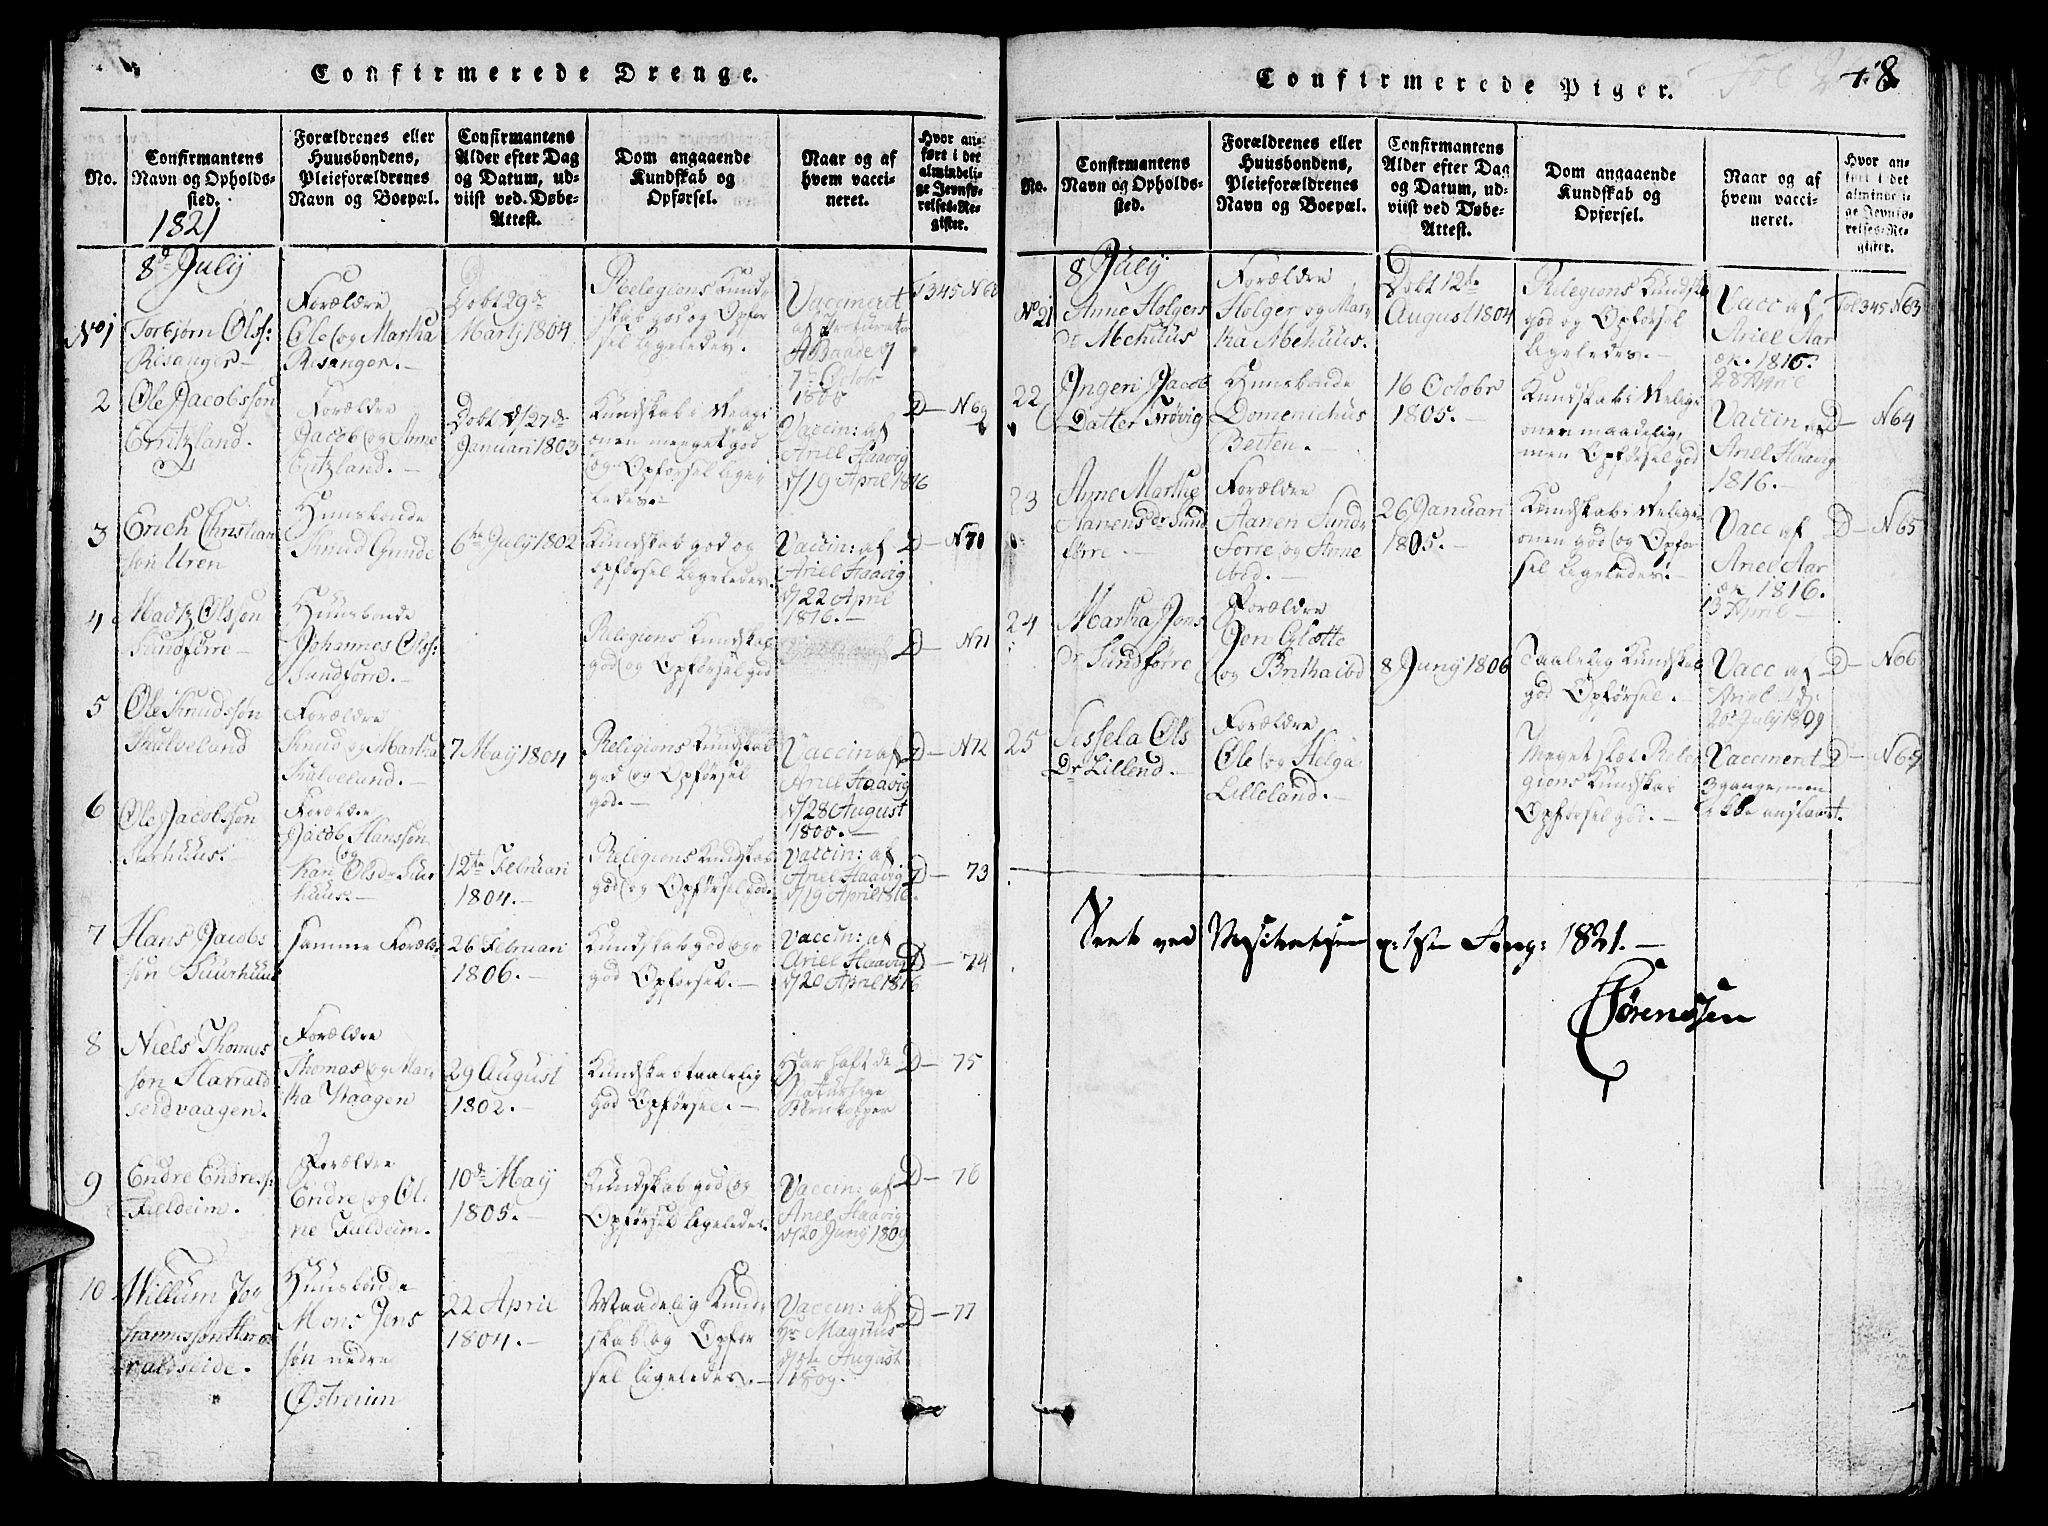 Confirmerede Drenge.
No.
Confirmantens
Navn og Opholds-
sted.
Forældrenes eller
Huusbondens,
Pleieforældrenes
Navn og Boepæl.
Confirmantens
Alder efter Dag
og Datum, ud-
viist ved Døbe-
Attest.
Dom angaaende
Kundskab og
Opførsel.
Naar og af
hvem vacci-
neret.
Hvor an-
ført i det
almindeli-
ge Jevnfø-
relses-Re-
gister.
1821
8d July
No 1
Torbjørn Ols:
Risanger
Forældre
Ole og Martha
Risanger.
Døbt 29de
Marty 1804
Religions Kund-
skab god og Opfør
sel ligeledes.
Vaccineret
af Procurator
A Baade
7de Octobr
1808
345 N 68
2
Ole Jacobssøn
Eritzland.
Forældre
Jacob og Anne
Eritzland.
Døbt d/27de
Januari 1803
Kundskab i Religi
onen meeget god
og Opførsel lige-
ledes.
Vaccin: af
Ariel Haavig
d/19 April 1816
D— N69
3
Erich Christian
søn Uren
Huusbonde
Knud Gunde
6te July 1802
Kundskab god og
opførsel ligeledes.
Vaccin: af
Ariel Haavig
d/22 April
1816.—
D— N70
4
Madtz Olssøn
Sundførre
Huusbonde
Johannes Ols:
Sundførre.
Religions Kundskab
god og Opførsel god
D— N71
5
Ole Knudssøn
Kulveland
Forældre
Knud og Martha
Kulveland.
7 May 1804
Religions Kundskab
god og Opførsel
god.
Vaccin af
Ariel Haavig
d/28 August
1808.—
D— N72
6
Ole Jacobssøn
Suurhuus.
Forældre
Jacob Hanssøn
og
Kari Olsdr Suur
huus.
12te Februari
1804.—
Religions Kundskab
god og Opførsel god.
Vaccin: af
Ariel Haavig
d/19 April 1816.
D— 73
7
Hans Jacobs
søn Suurhuus
samme Forældre
26 Februari
1806.—
Kundskab god og
god Opførsel.—
Vaccin: af
Ariel Haavig
d/20 April 1816
D— 74
8
Niels Thomas
søn Harrald
seidvaagen.
Forældre
Thomas og Mar
tha Vaagen
29 August
1802.—
Kundskab taalelig
god Opførsel.—
Har haft de
Naturlige
Børnekopper
D— 75
9
Endre Endres:
Fieldeim.
Forældre
Endre og Ol
ne Fieldeim.
10de May
1805.—
Kundskab god og
Opførsel ligeledes.
Vaccin: af
Ariel Haavig
d/20 Juny 1809
D— 76
10
Willum Jo
hannessøn Har
raldseide.
Huusbonde
Mons Jens
søn nedre
Østreim
22 April
1804.—
Maadelig Kund-
skab og Opfør
sel ligeledes.
Vaccin: af
Hr Magnus
August
1809.
D— 77
Confirmerede Piger.
Fol 248
No.
Confirmantens
Navn og Opholds-
sted.
Forældrenes eller
Huusbondens,
Pleieforældrenes
Navn og Boepæl.
Confirmantens
Alder efter Dag
og Datum, ud-
viist ved Døbe-
Attest.
Dom angaaende
Kundskab og
Opførsel.
Naar og af
hvem vacci-
neret.
Hvor an-
ført i det
almindeli-
ge Jevnfø-
relses-Re-
gister.
8 July
No 21
Anne Holgers
Dr Mehuus
Forældre
Holger og Mar-
tha Mehuus.
Døbt 12te
August 1804
Religions Kundskab
god og Opførsel
ligeledes.—
Vacc af
Ariel Aar
1816.
28 April
Fol 345 N63
22
Ingeri Jacob
Datter Frøvig
Huusbonde
Domenichus
Beiten.—
16 Octobr
1805.—
Kundskab i Religi
onen maadelig,
men Opførsel god
Vaccin af
Ariel Haavig
1816.—
D— N64
23
Anne Marthe
Aanens Dr Sund
førre.—
Forældre
Aanen Sund-
førre og Anne
ibid.—
26 Januari
1805.—
Kundskab i Religi
onen god og Opfør
sel ligeledes.—
Vacc af
Ariel Aar
1816.
13 April—
D— N65
24
Martha Jons
Dr Sundførre
Forældre
Jon Glette
og Britha ibd
8 Juny 1806
Taalelig Kundskab
god Opførsel.—
Vacc af
26d July 1809
D— N66
25
Sessela Ols
Dr Lilland.
Forældre
Ole og Helga
Lilleland.—
Meget slæt Reli
gions Kundskab
Opførsel god.—
Vaccineret
3 gange men
ikke anslaaet.
D— N67
Seet ved Visitatsen 1821.—
Sørenssen